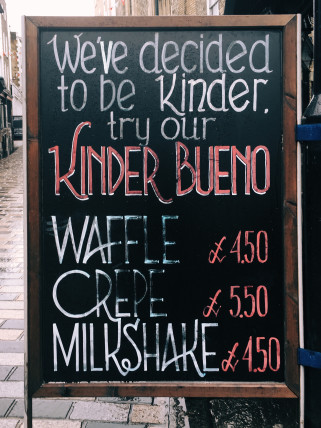 We've decided
to be Kinder.
try our
KINDER BUENO
WAFFLE £4.50
CREPE £5.50
MILKSHAKE £4.50